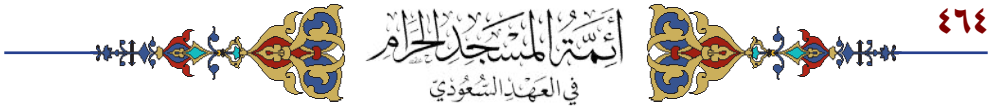 ٤٦٤
أئمة المسجد الحرام
في العهد السعودي